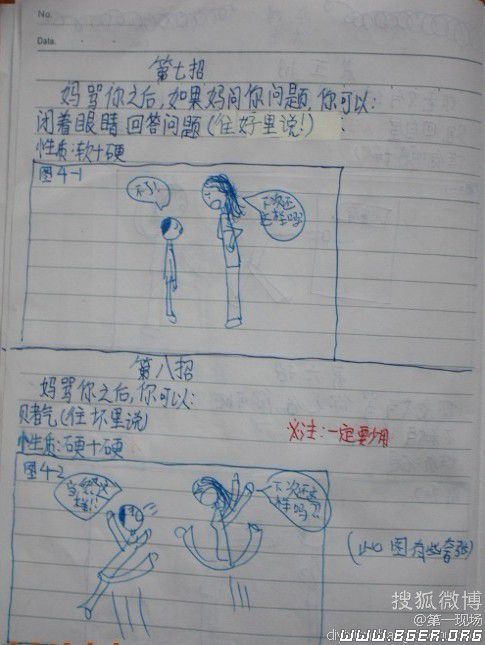 No.
Data.
第七招
妈骂你之后,如果妈问你问题,你可以:
闭着眼睛回答问题(住好里说!)
性质:软+硬
图4-1
不了!
下次还这样吗
第八招
妈骂你之后,你可以:
赌气(住坏里说)
※注:一定要少用
性质:硬+硬
图4-2
当然这样!!
下次还这样吗?!
(此图有些夸张)
搜狐微博
@第一现场
WWW.BGER.ORG